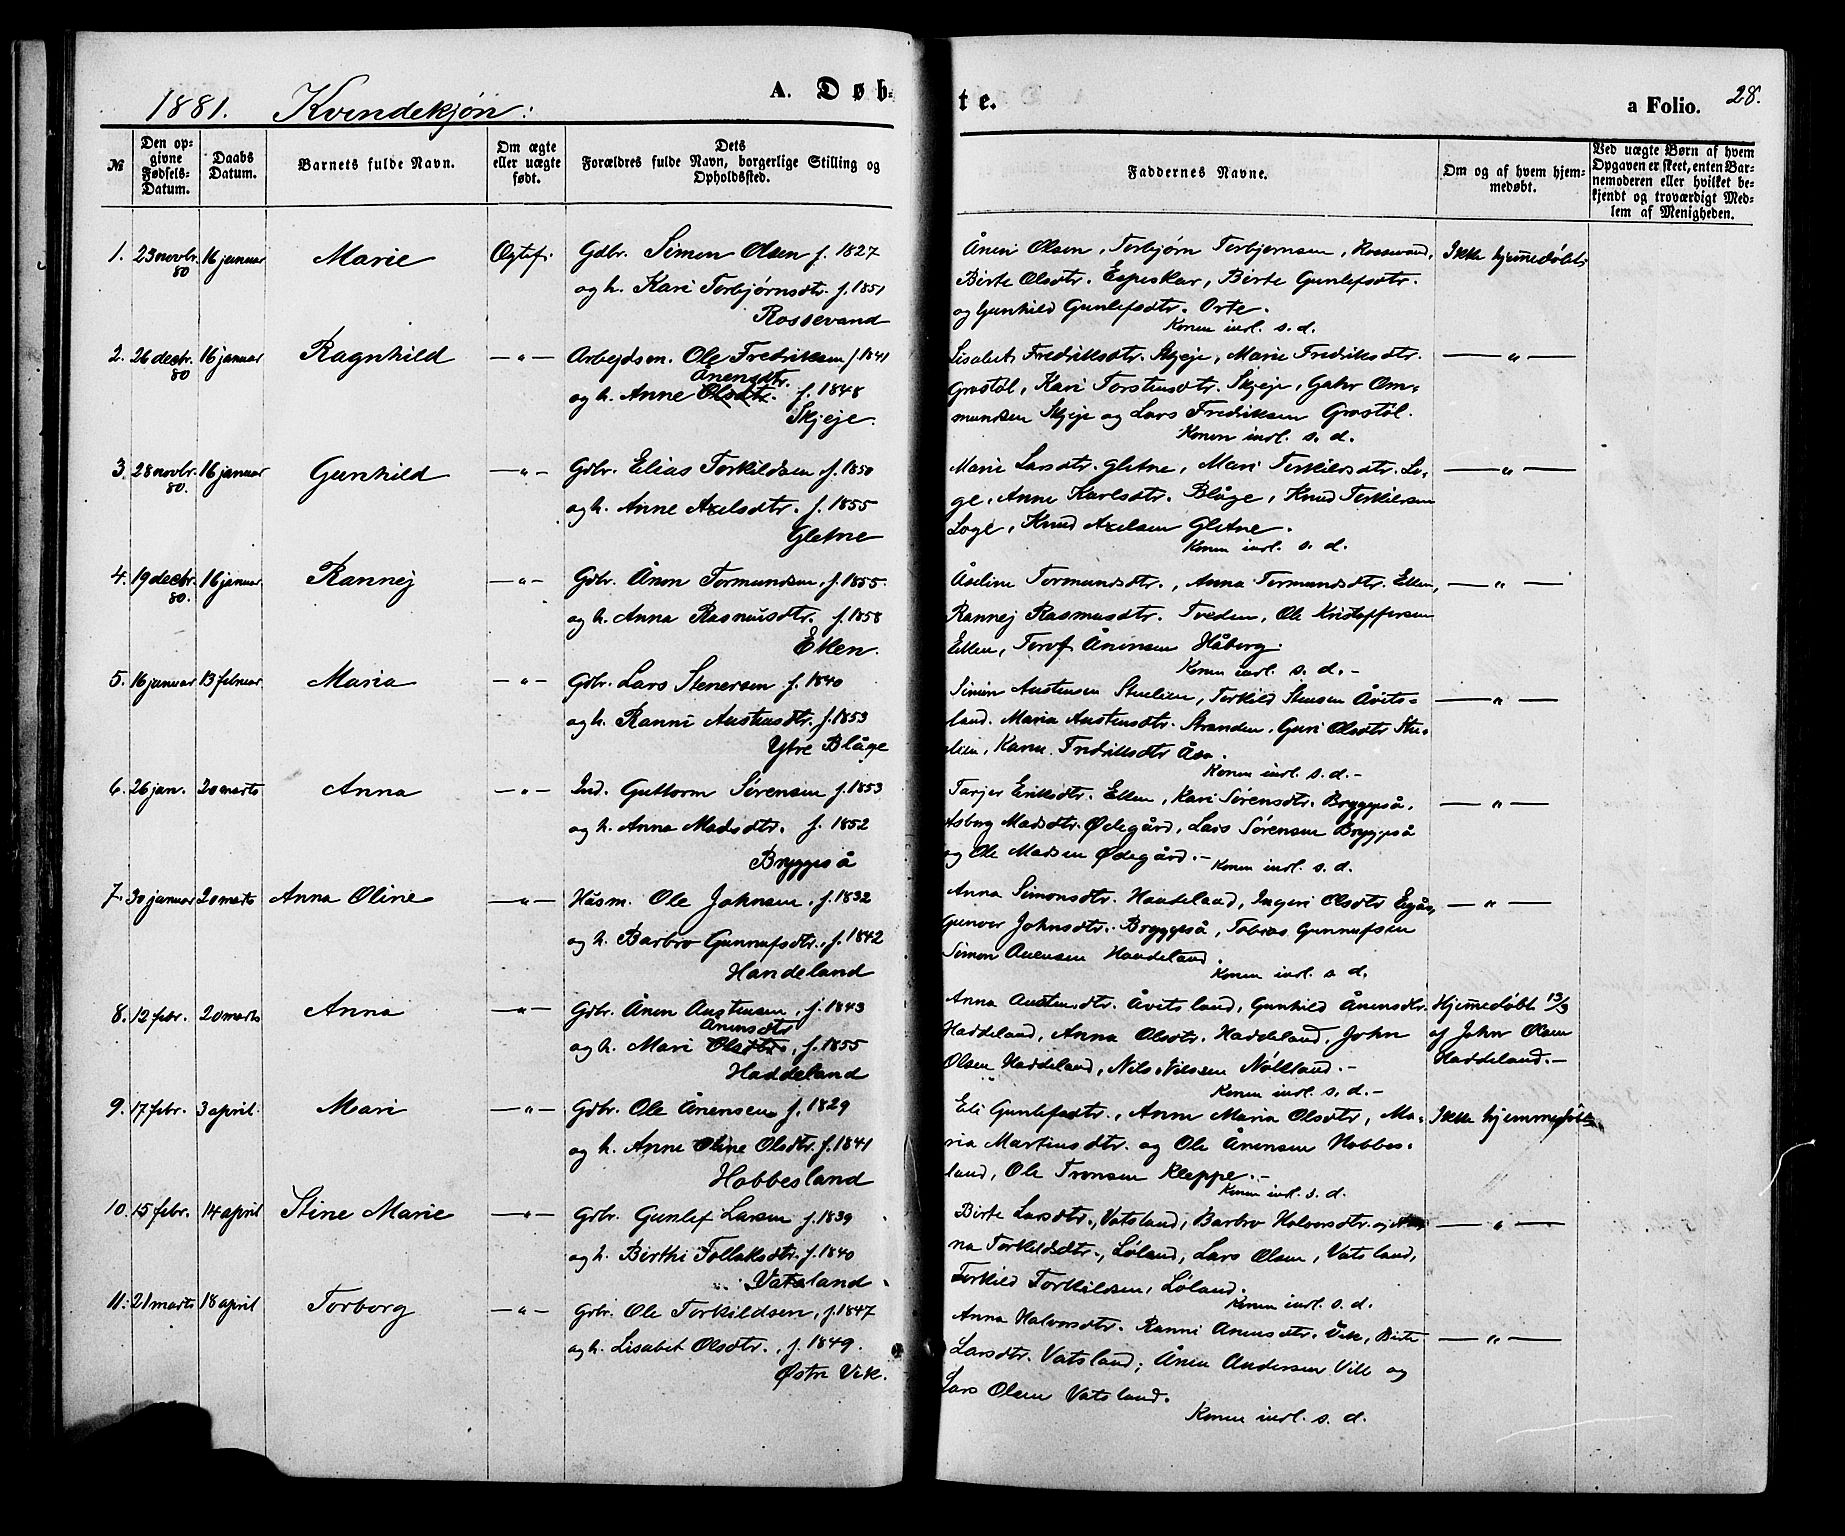 1881. Kvendekjøn:
A. Døb-
te.
a Folio. 28.
№
Den op-
givne
Fødsels-
Datum.
Daabs
Datum.
Barnets fulde Navn.
Om ægte
eller uægte
født.
Dets
Forældres fulde Navn, borgerlige Stilling og
Opholdssted.
Faddernes Navne.
Om og af hvem hjem-
medøbt.
Ved uægte Børn af hvem
Opgaven er skeet, enten Bar-
nemoderen eller hvilket be-
kjendt og troværdigt Med-
lem af Menigheden.
1. 23 novbr. 80 16 januar Marie Ogtef. Gdbr. Simon Olsen f. 1827
og h. Kari Torbjørnsdtr. f. 1851
Rossevand
Åneri Olsen, Torbjørn Torbjørnsen, Rossevand,
Birte Olsdtr. Espeskar, Birte Gunlefsdtr.
og Gunhild Gunlefsdtr. Orte.
Konen indl. s. d.
Ikke hjemmedøbt
2. 26 decbr. 80 16 januar Ragnhild — " — Arbejdsm. Ole Fredriksen f. 1841
Ånensdtr.
og h. Anne Olsdtr. f. 1848
Skjeje.
Lisabet Fredriksdtr. Skjeje, Marie Fredriksdtr.
Grostøl, Kari Torstensdtr. Skjeje, Gahr Om-
mundsen Skjeje og Lars Fredriksen Grostøl.
Konen indl. s. d.
— " —
3. 28 novbr. 80. 16 januar Gunhild — " — Gdbr. Elias Torkildsen f. 1850
og h. Anne Axelsdtr. f. 1855
Gletne
Marie Larsdtr. Gletne, Mari Terkilsdtr. Lo-
ge, Anne Karlsdtr. Blåge, Knud Terkilsen
Loge, Knud Axelsen Gletne.
Konen indl. s. d.
— " —
4. 19 decbr. 80. 16 januar Rannej — " — Gdbr. Ånon Tormundsen, f. 1855.
og h. Anna Rasmusdtr. f. 1858
Eken.
Åseline Tormundsdtr., Anna Tormundsdtr. Eken,
Rannej Rasmusdtr. Tveden, Ole Kristoffersen
Eiken, Ånensen Håberg.
Konen indl. s. d. -
— " —
5. 16 januar 13 februar Maria — " — Gdbr. Lars Stenersen f. 1840
og h. Ranni Austensdtr. f. 1853
Ytre Blåge
Simon Austensen Stuelien, Torkild Stensen Åvits-
land. Maria Austensdtr. Stranden, Guri Olsdtr Stu-
elien, Fredriksdtr Åsa.
Konen indl. s. d. -
— " —
6. 26 jan. 20 marts Anna — " — Ind. Guttorm Sørensen f. 1853
og h. Anna Madsdtr. f. 1852
Bryggeså
Tarjer Eriksdtr. Eken, Kari Sørensdtr. Bryggeså,
Asborg Madsdtr. Ødegård, Lars Sørensen Bryggeså
og Ole Madsen Ødegård. -
Konen indl. s. d.
— " —
7. 30 januar 20 marts Anna Oline — " — Husm. Ole Johnsen, f. 1832
og h. Barbro Gunnufsdtr., f. 1842
Handeland
Anna Simonsdtr. Handeland, Ingeri Olsdtr Egås,
Gunvor Johnsdtr. Bryggeså, Tobias Gunnufsen
Simon Anensen Handeland.
Konen indl. s d.
— " —
8. 12 febr. 20 marts Anna — " — Gdbr. Ånen Austensen, f. 1843
Anensdtr
og h. Mari Olsdtr, f. 1855
Haddeland
Anna Austensdtr. Åvitsland, Gunhild Ånensdtr.
Haddeland, Anna Olsdtr. Haddeland, John
Olsen Haddeland, Nils Nilssen Nølland. -
Konen indl. s. d. -
Hjemmedøbt 13/3
af John Olsen
Haddeland. -
9. 17 febr. 3 april. Mari — " — Gdbr. Ole Ånensen, f. 1829
og h. Anne Oline Olsdtr. f. 1841
Hobbesland
Eli Gunlefsdtr., Anne Maria Olsdtr, Ma-
ria Martinsdtr. og Ole Ånensen Hobbes-
land, Ole Tronsen Kleppe. -
Konen indl. s. d.
Ikke hjemmedøbt
10. 15 febr. 14 april Stine Marie — " — Gdbr. Gunlef Larsen f. 1839
og h. Birthe Follaksdtr. f. 1840
Vatsland
Birte Larsdtr., Vatsland, Barbro Halvorsdtr. og An-
na Torkildsdtr., Løland, Lars Olsen, Vatsland,
Torkild Torkildsen, Løland.
Konen indl. s. d.
— " —
11. 21 marts 18 april Torborg — " — Gdbr. Ole Torkildsen, f. 1847
og h. Lisabet Olsdtr., f. 1849.
Østre Vik.
Anna Halvorsdtr. Ranni Anensdtr. Vik, Birte
Larsdtr. Vatsland, Ånen Andersen Vik og
Lars Olsen Vatsland.
Konen indl. s. d.
— " —